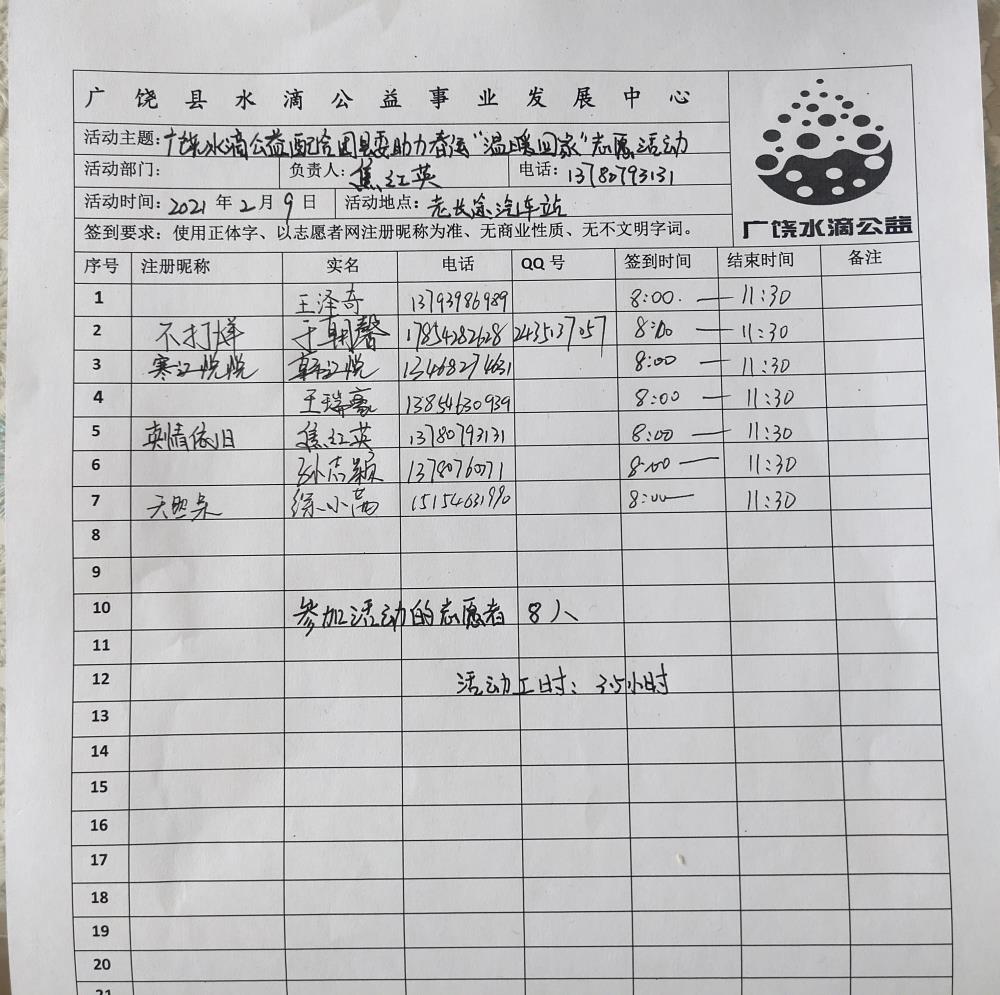 广饶县水滴公益事业发展中心
活动主题:广饶水滴公益配合团县委助力春运“温暖回家”志愿活动
活动部门: 负责人:焦红英 电话:13780793131
活动时间:2021年2月9日 活动地点:老长途汽车站
签到要求:使用正体字、以志愿者网注册昵称为准、无商业性质、无不文明字词。
广饶水滴公益
序号 注册昵称 实名 电话 QQ号 签到时间 结束时间 备注
1 王泽奇 13793986989 8:00. — 11:30
2 不打烊 于朝馨 17854282628 2435137057 8:00 — 11:30
3 寒江悦悦 韩江悦 13468274631 8:00 — 11:30
4 王瑞豪 13854630939 8:00 — 11:30
5 真情依旧 焦红英 13780793131 8:00 — 11:30
6 孙志颖 1378076071 8:00 — 11:30
7 天然呆 徐小茜 15154631990 8:00 — 11:30
8
9
10 参加活动的志愿者 8人
11
12 活动工时:3.5小时
13
14
15
16
17
18
19
20
21